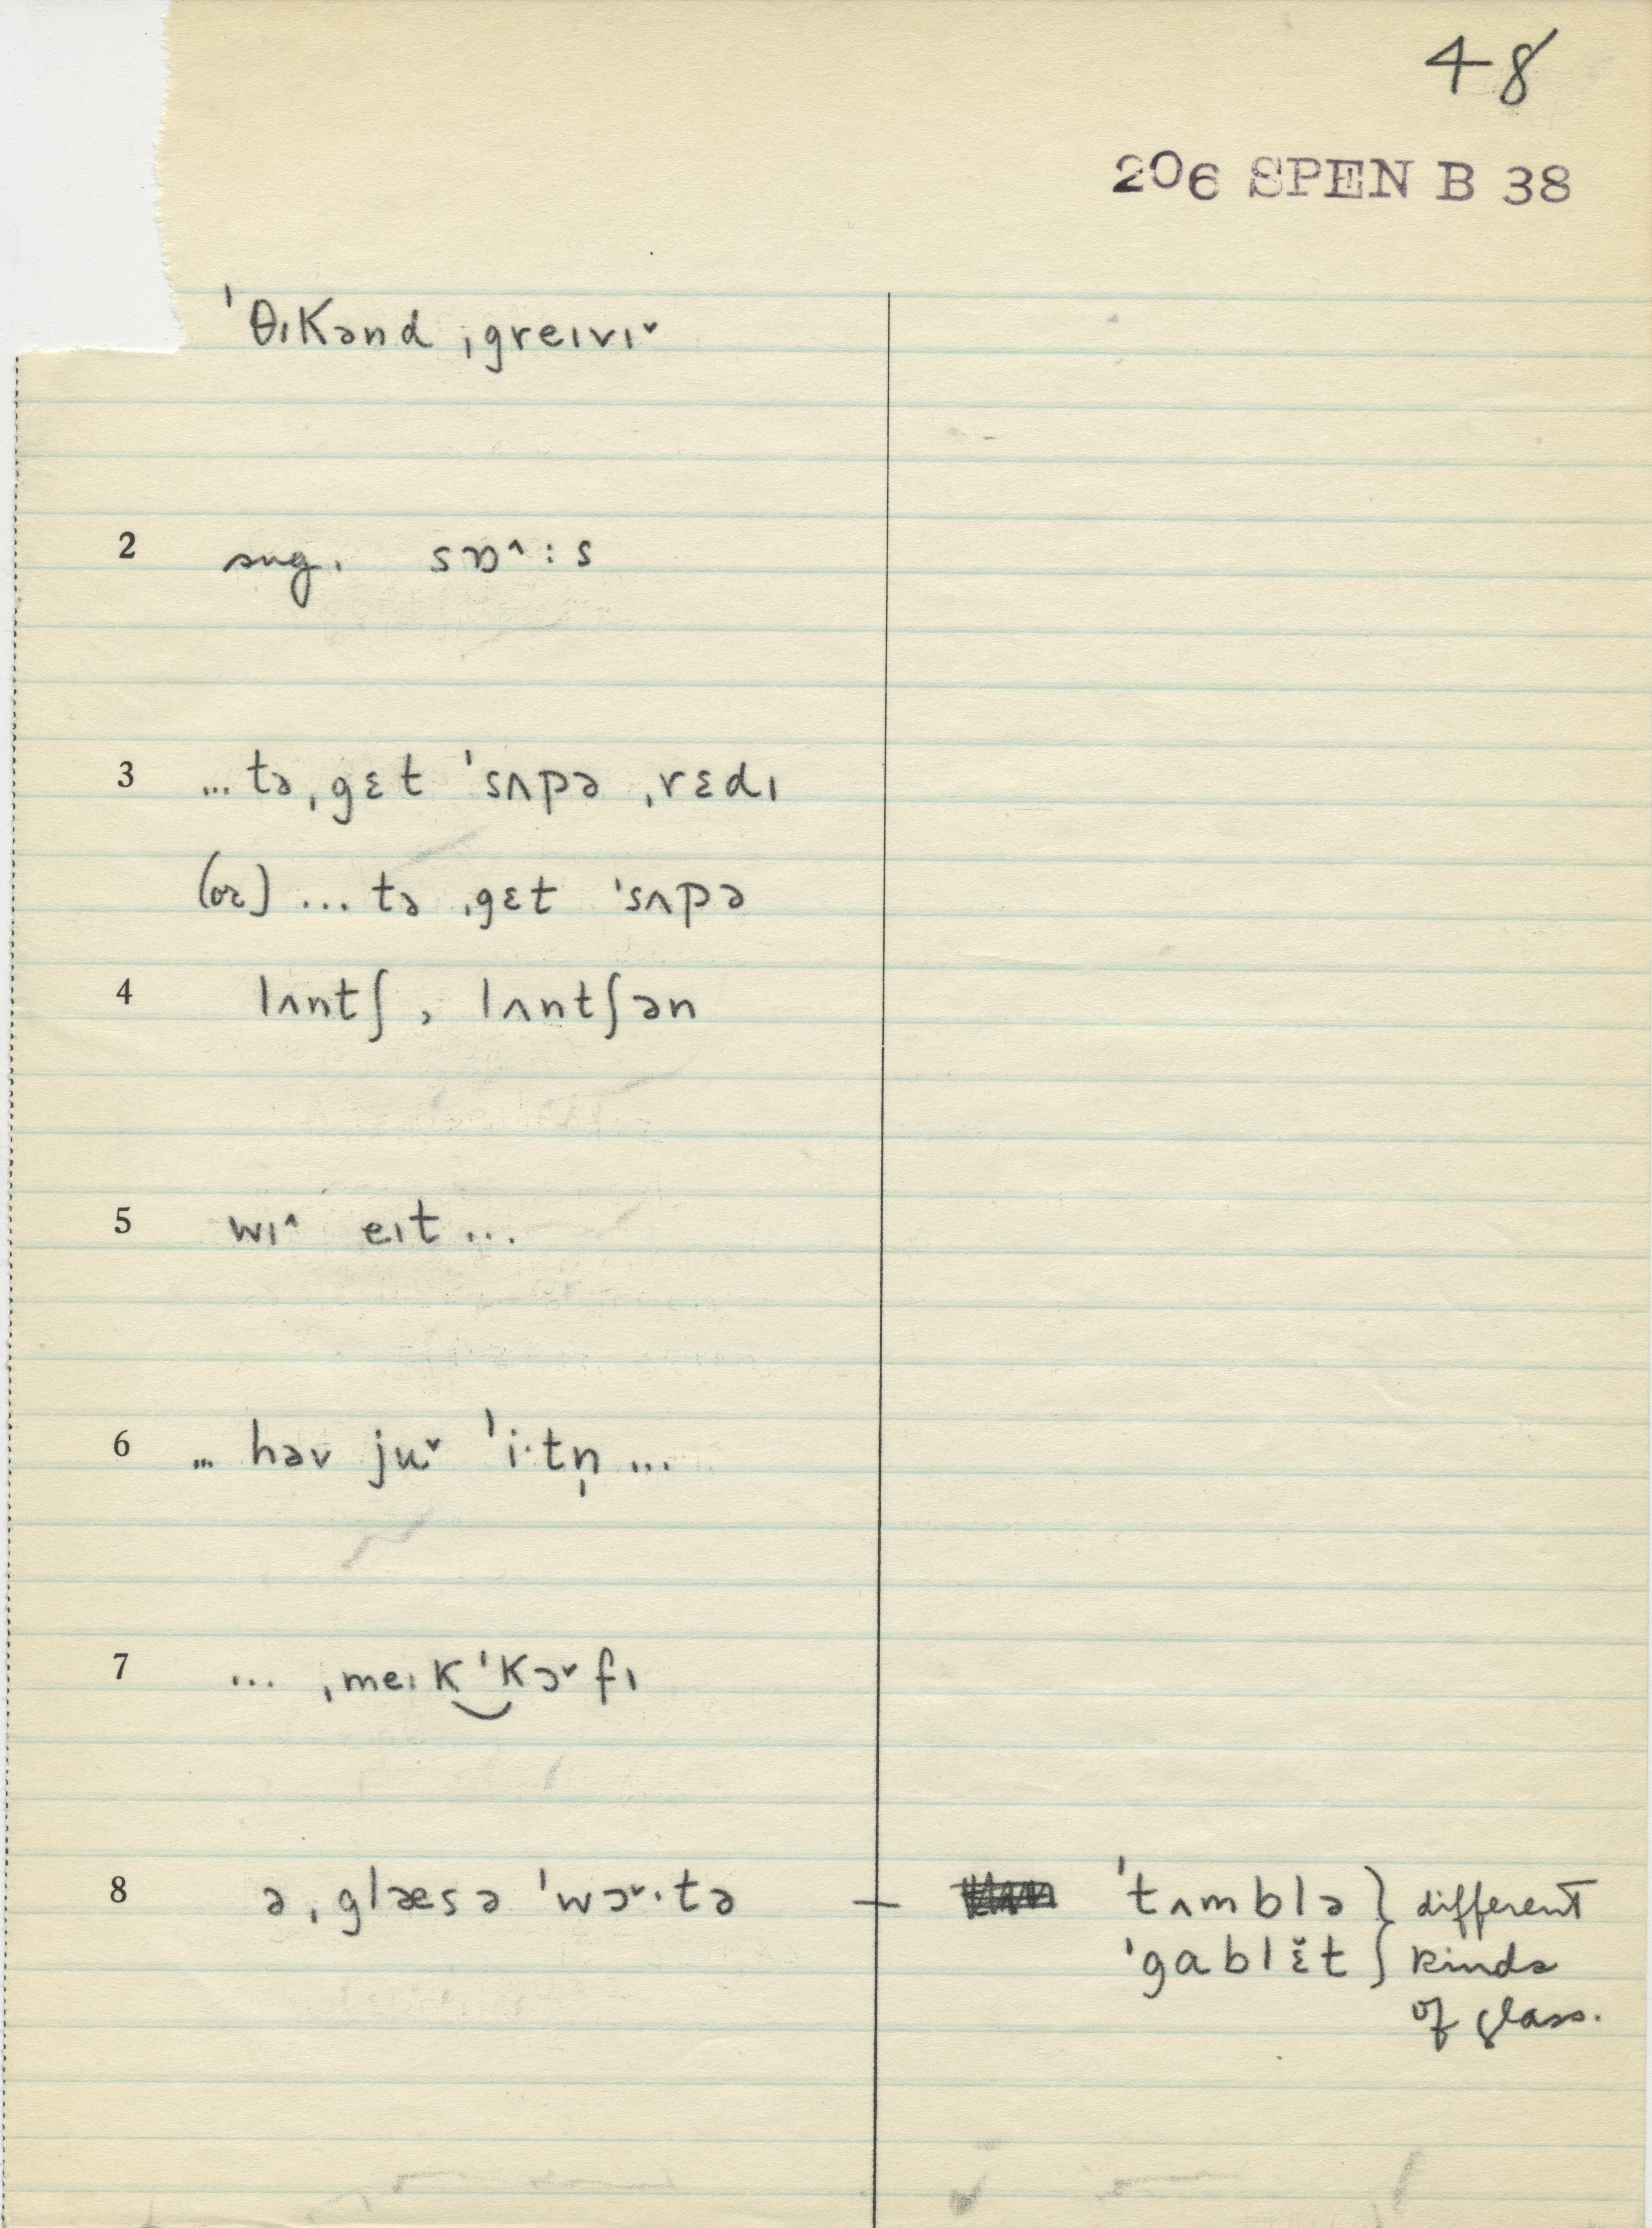 48
206 SPEN B 38
ˈθɪkənd ˌgreɪvɪ˅
2 sug. sɒ^:s
3 ... tə ˌgɛt ˈsʌpə ˌrɛdɪ
(or) ... tə ˌgɛt ˈsʌpə
4 lʌntʃ, lʌntʃən
5 wɪ^ eɪt ...
6 ... həv ju˅ ˈi·tn̩ ...
7 ... ˌmeɪk‿ˈkɔ˅fɪ
8 ə ˌglæsə ˈwɔ˅·tə — ˈtʌmblə } different
ˈgablɛ̆t } kinds
of glass.